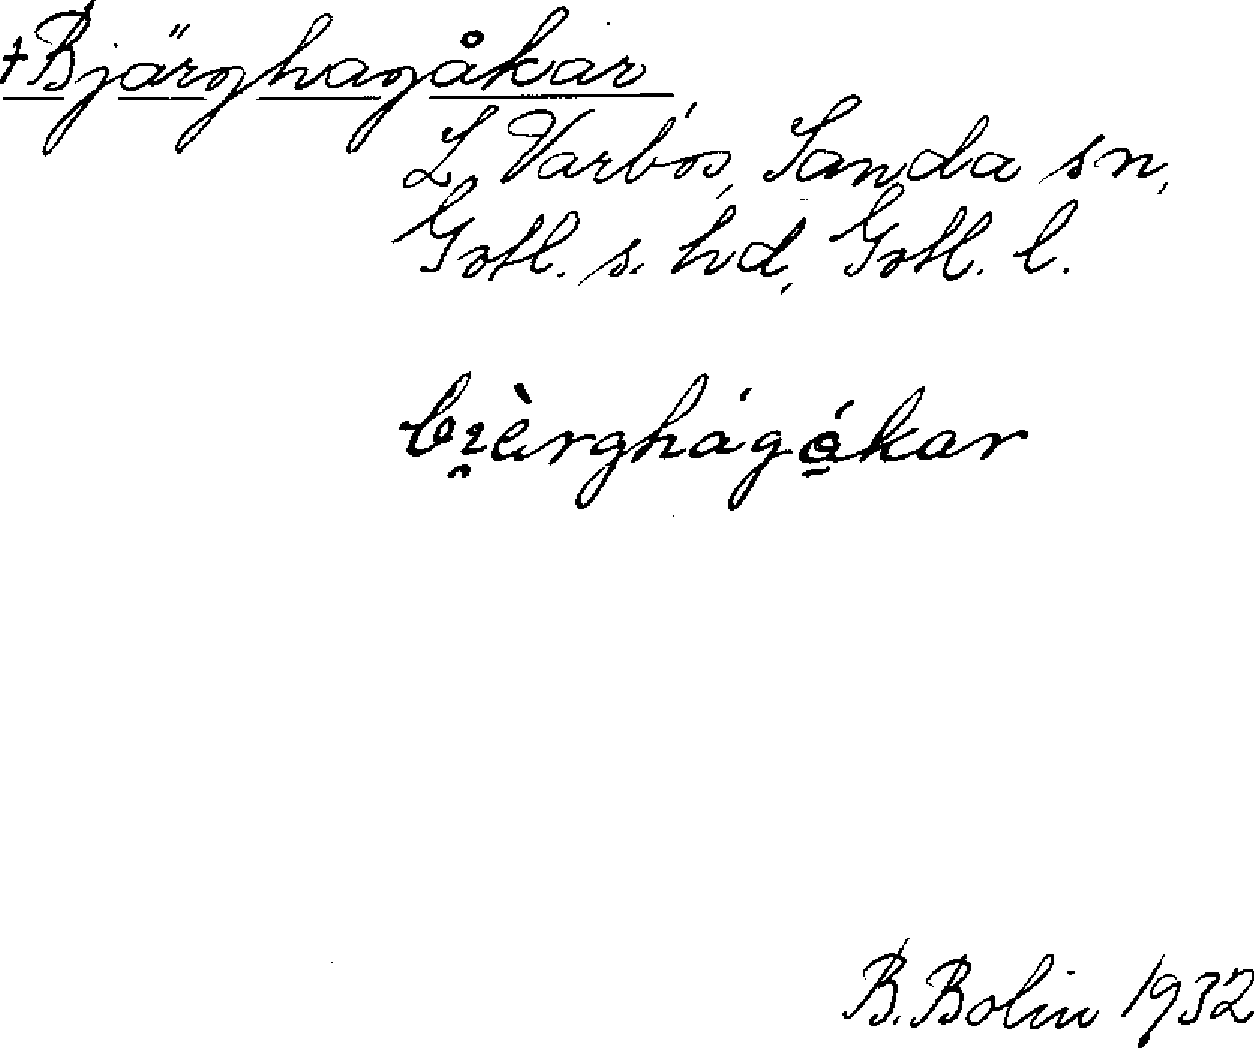 †Bjärghagåkar
L. Varbós, Sanda sn,
Gotl. s. hd, Gotl. l.
bi̯èrghágákar
B. Bolin 1932